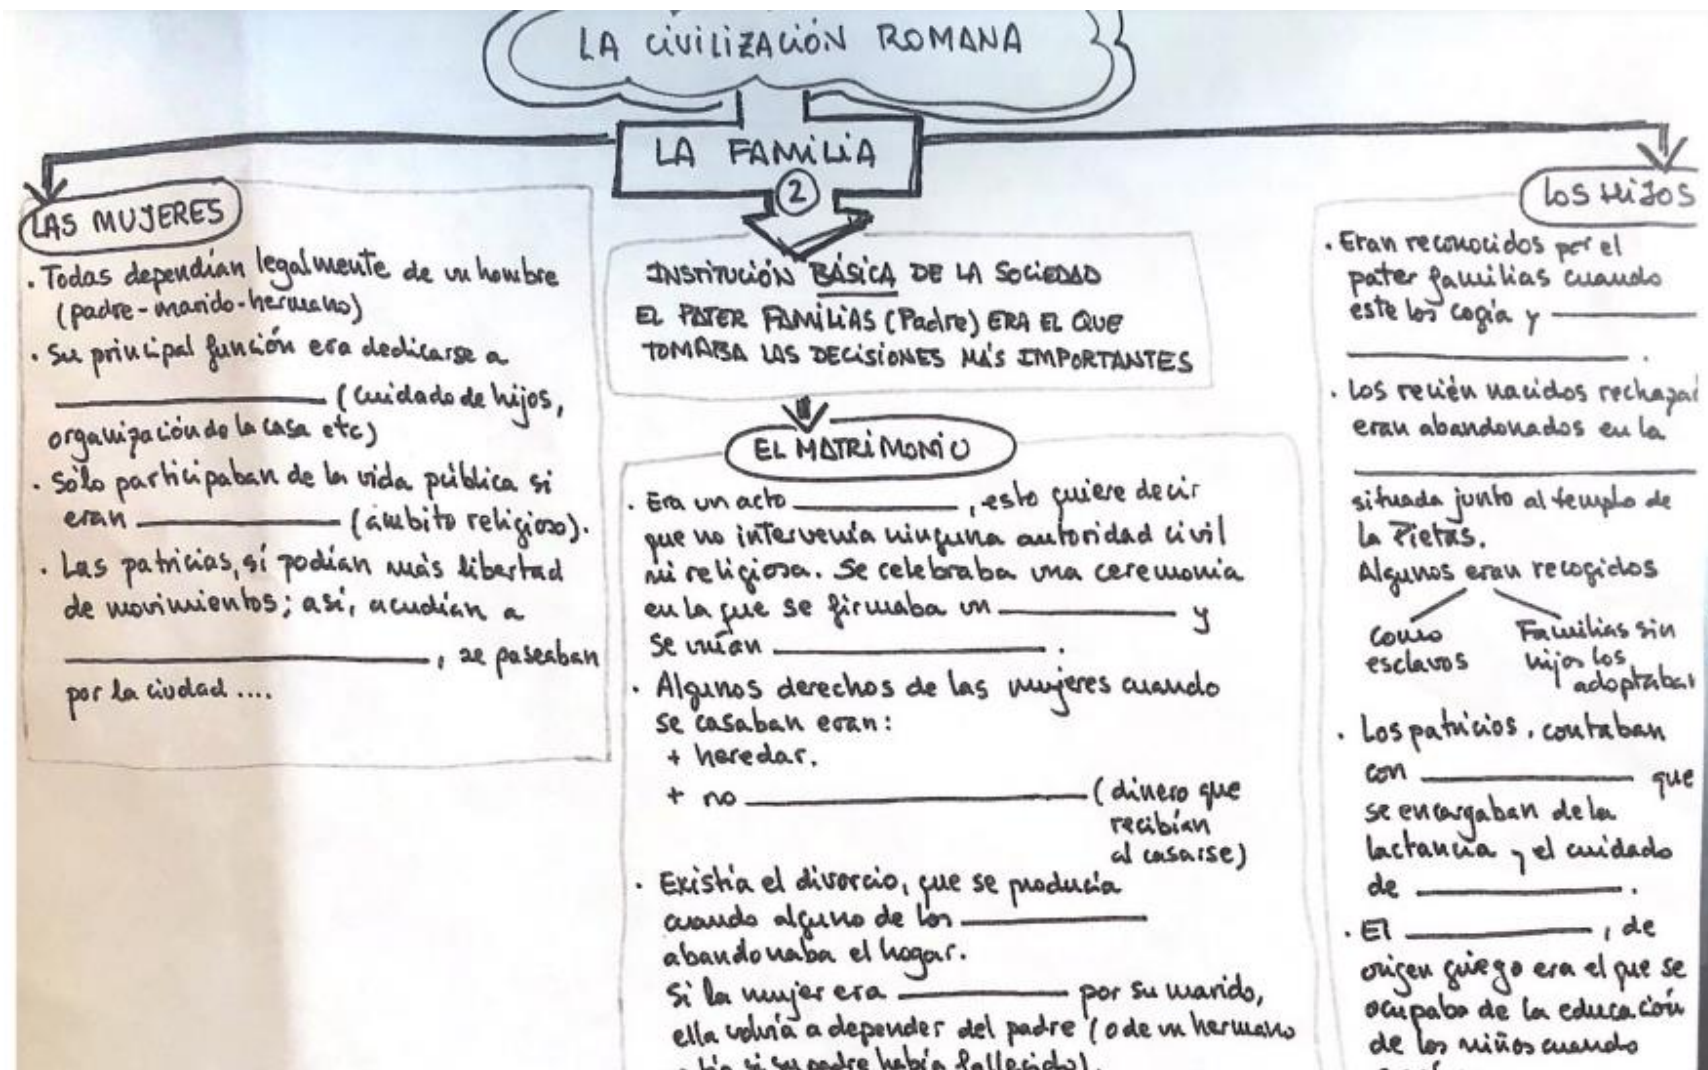 LA CIVILIZACIÓN ROMANA
LA FAMILIA
2
LAS MUJERES
· Todas dependían legalmente de un hombre
(padre-marido-hermano)
· Su principal función era dedicarse a
____________ (cuidado de hijos,
organización de la casa etc)
· Sólo participaban de la vida pública si
eran ____________ (ámbito religioso).
· Las patricias, sí podían más libertad
de movimientos; así, acudían a
____________, se paseaban
por la ciudad ....
INSTITUCIÓN BÁSICA DE LA SOCIEDAD
EL PATER FAMILIAS (Padre) ERA EL QUE
TOMABA LAS DECISIONES MÁS IMPORTANTES
EL MATRIMONIO
· Era un acto ____________, esto quiere decir
que no intervenía ninguna autoridad civil
ni religiosa. Se celebraba una ceremonia
en la que se firmaba un ____________ y
se unían ____________.
· Algunos derechos de las mujeres cuando
se casaban eran:
+ heredar.
+ no ____________ (dinero que
recibían
al casarse)
· Existía el divorcio, que se producía
cuando alguno de los ____________
abandonaba el hogar.
Si la mujer era ____________ por su marido,
ella volvía a depender del padre (o de un hermano
si su padre había fallecido).
LOS HIJOS
· Eran reconocidos por el
pater familias cuando
este los cogía y ____________
____________.
· Los recién nacidos rechaza
eran abandonados en la
____________
situada junto al templo de
la Pietas.
Algunos eran recogidos
como
esclavos
Familias sin
hijos los
adoptaba
· Los patricios, contaban
con ____________ que
se encargaban de la
lactancia y el cuidado
de ____________.
· El ____________, de
origen griego era el que se
ocupaba de la educación
de los niños cuando